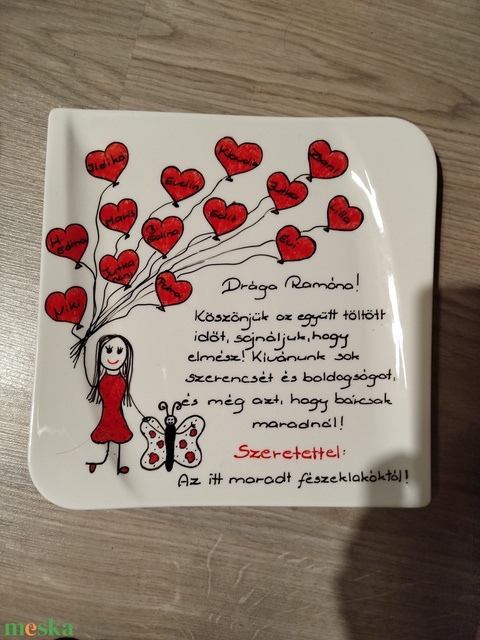 Ildikó
Klaudia
Dani
Evelin
Jutka
Maris
Edit
Lilla
H.
Edina
B.
Edina
Évi
Jutka
néni
Petra
Niki
Drága Ramóna!
Köszönjük az együtt töltött
időt, sajnáljuk, hogy
elmész! Kívánunk sok
szerencsét és boldogságot,
és még azt, hogy bárcsak
maradnál!
Szeretettel:
Az itt maradt fészeklakóktól!
meska